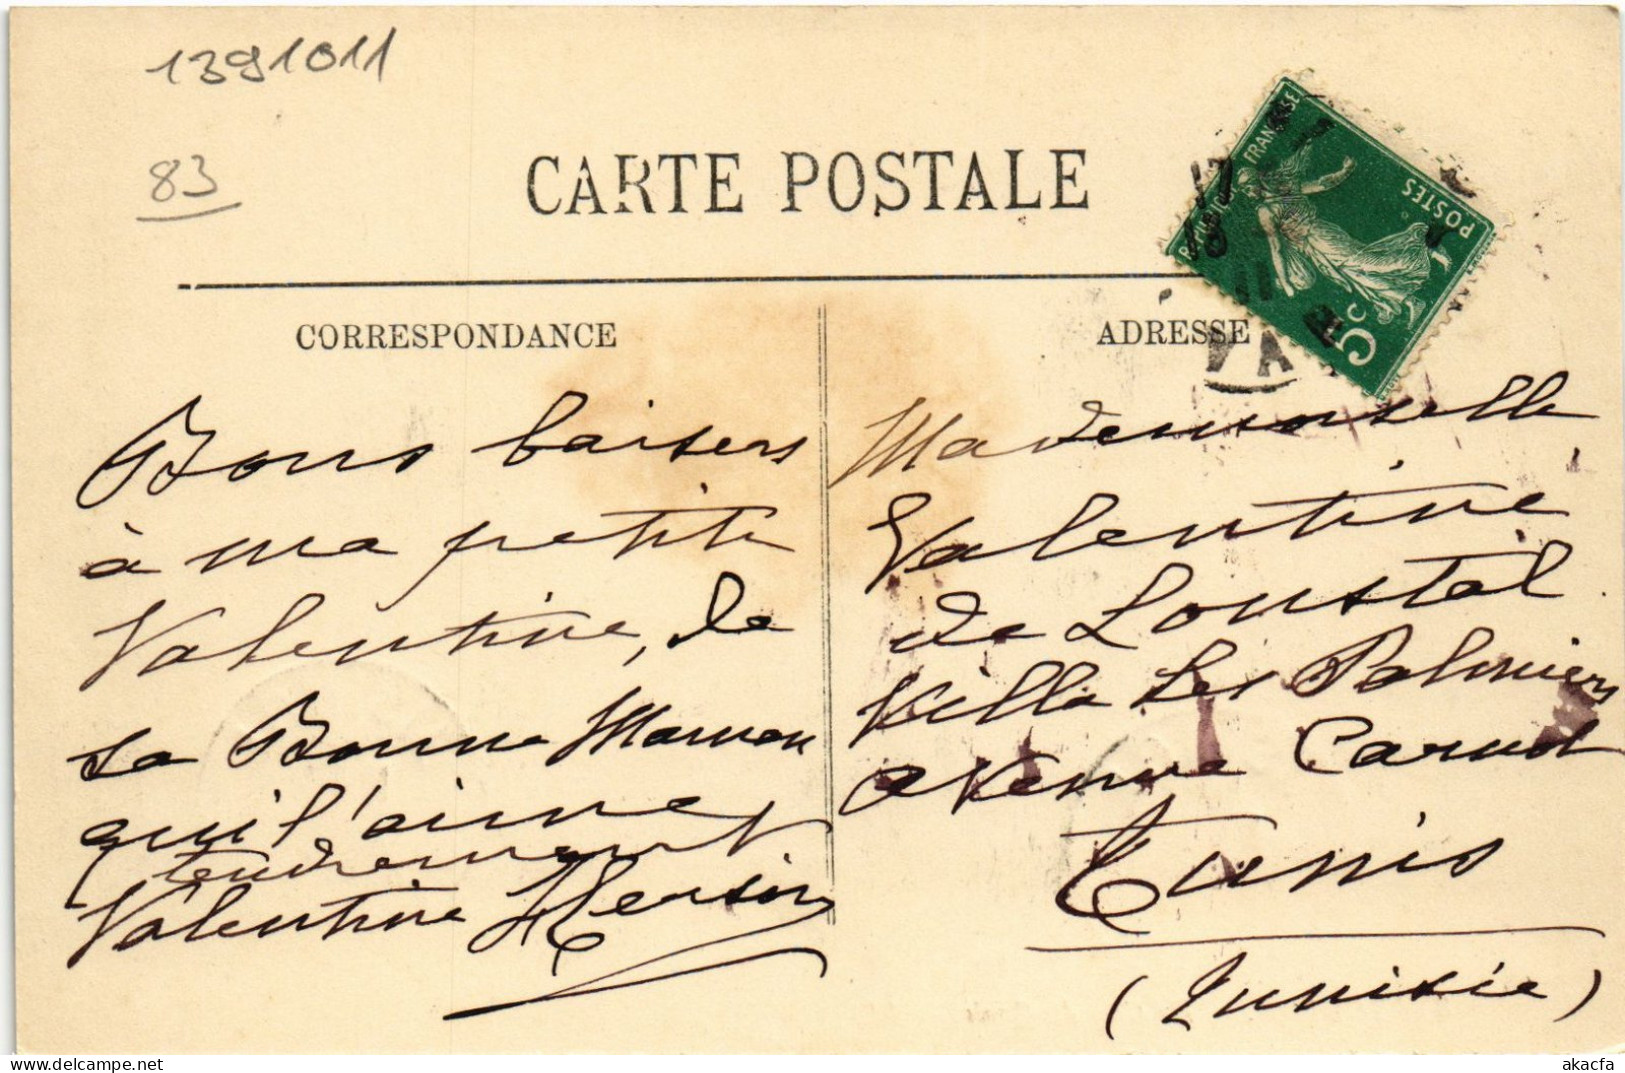 1391011
83
CARTE POSTALE
RÉPUBLIQUE FRANÇAISE
POSTES
5c
17
10
11
VAR
CORRESPONDANCE
ADRESSE
Bons baisers
à ma petite
Valentine, de
sa Bonne Maman
qui l'aime
tendrement
Valentine
Mademoiselle
Valentine
de Loustal
Villa Les Palmiers
avenue Carnot
Tunis
(Tunisie)
akacfa